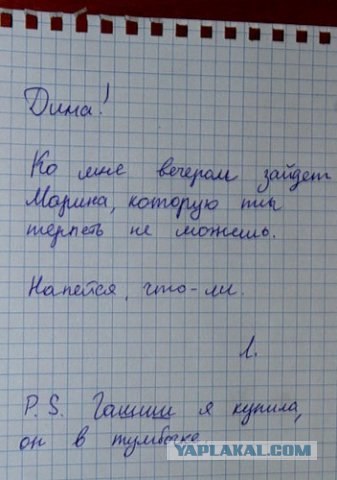 Дима!
Ко мне вечером зайдет
Марина, которую ты
терпеть не можешь.
Напейся, что-ли.
Л.
P.S. Гашиш я купила,
он в тумбочке
YAPLAKAL.COM